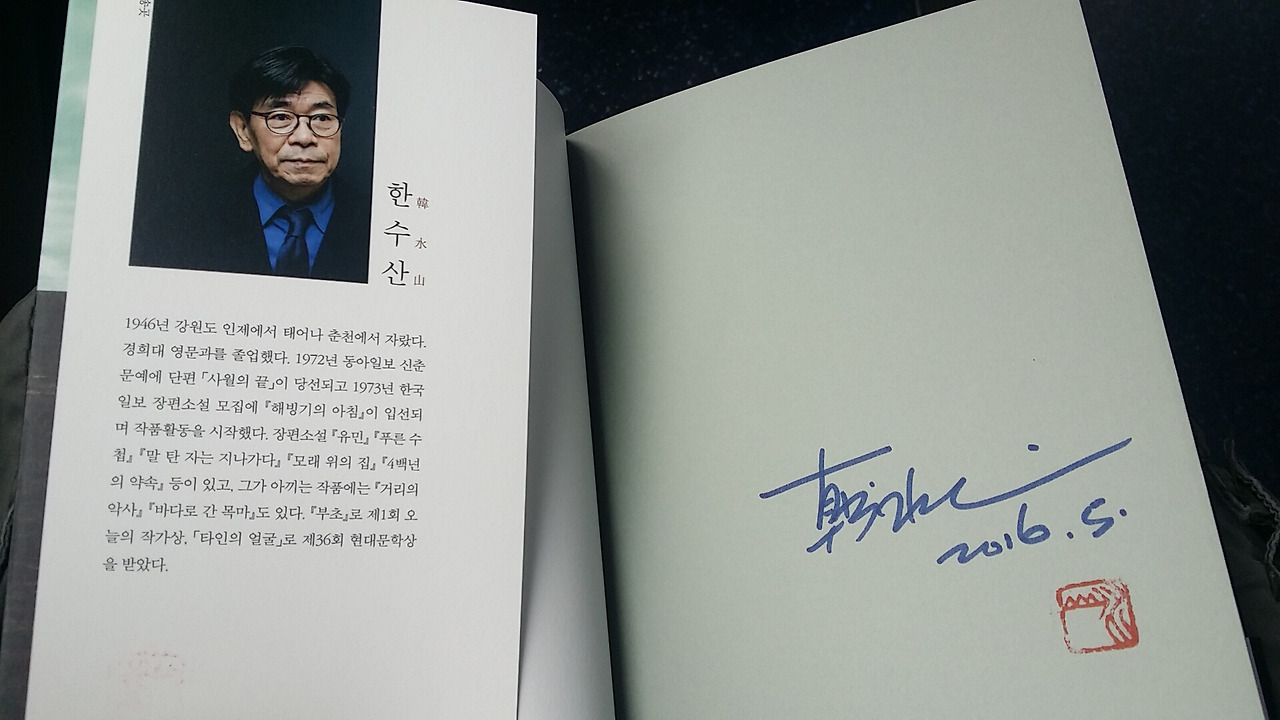 한 韓
수 水
산 山
1946년 강원도 인제에서 태어나 춘천에서 자랐다.
경희대 영문과를 졸업했다. 1972년 동아일보 신춘
문예에 단편 「사월의 끝」이 당선되고 1973년 한국
일보 장편소설 모집에 『해빙기의 아침』이 입선되
며 작품활동을 시작했다. 장편소설 『유민』 『푸른 수
첩』 『말 탄 자는 지나가다』 『모래 위의 집』 『4백년
의 약속』 등이 있고, 그가 아끼는 작품에는 『거리의
악사』 『바다로 간 목마』도 있다. 『부초』로 제1회 오
늘의 작가상, 「타인의 얼굴」로 제36회 현대문학상
을 받았다.
韓水山
2016. 5.